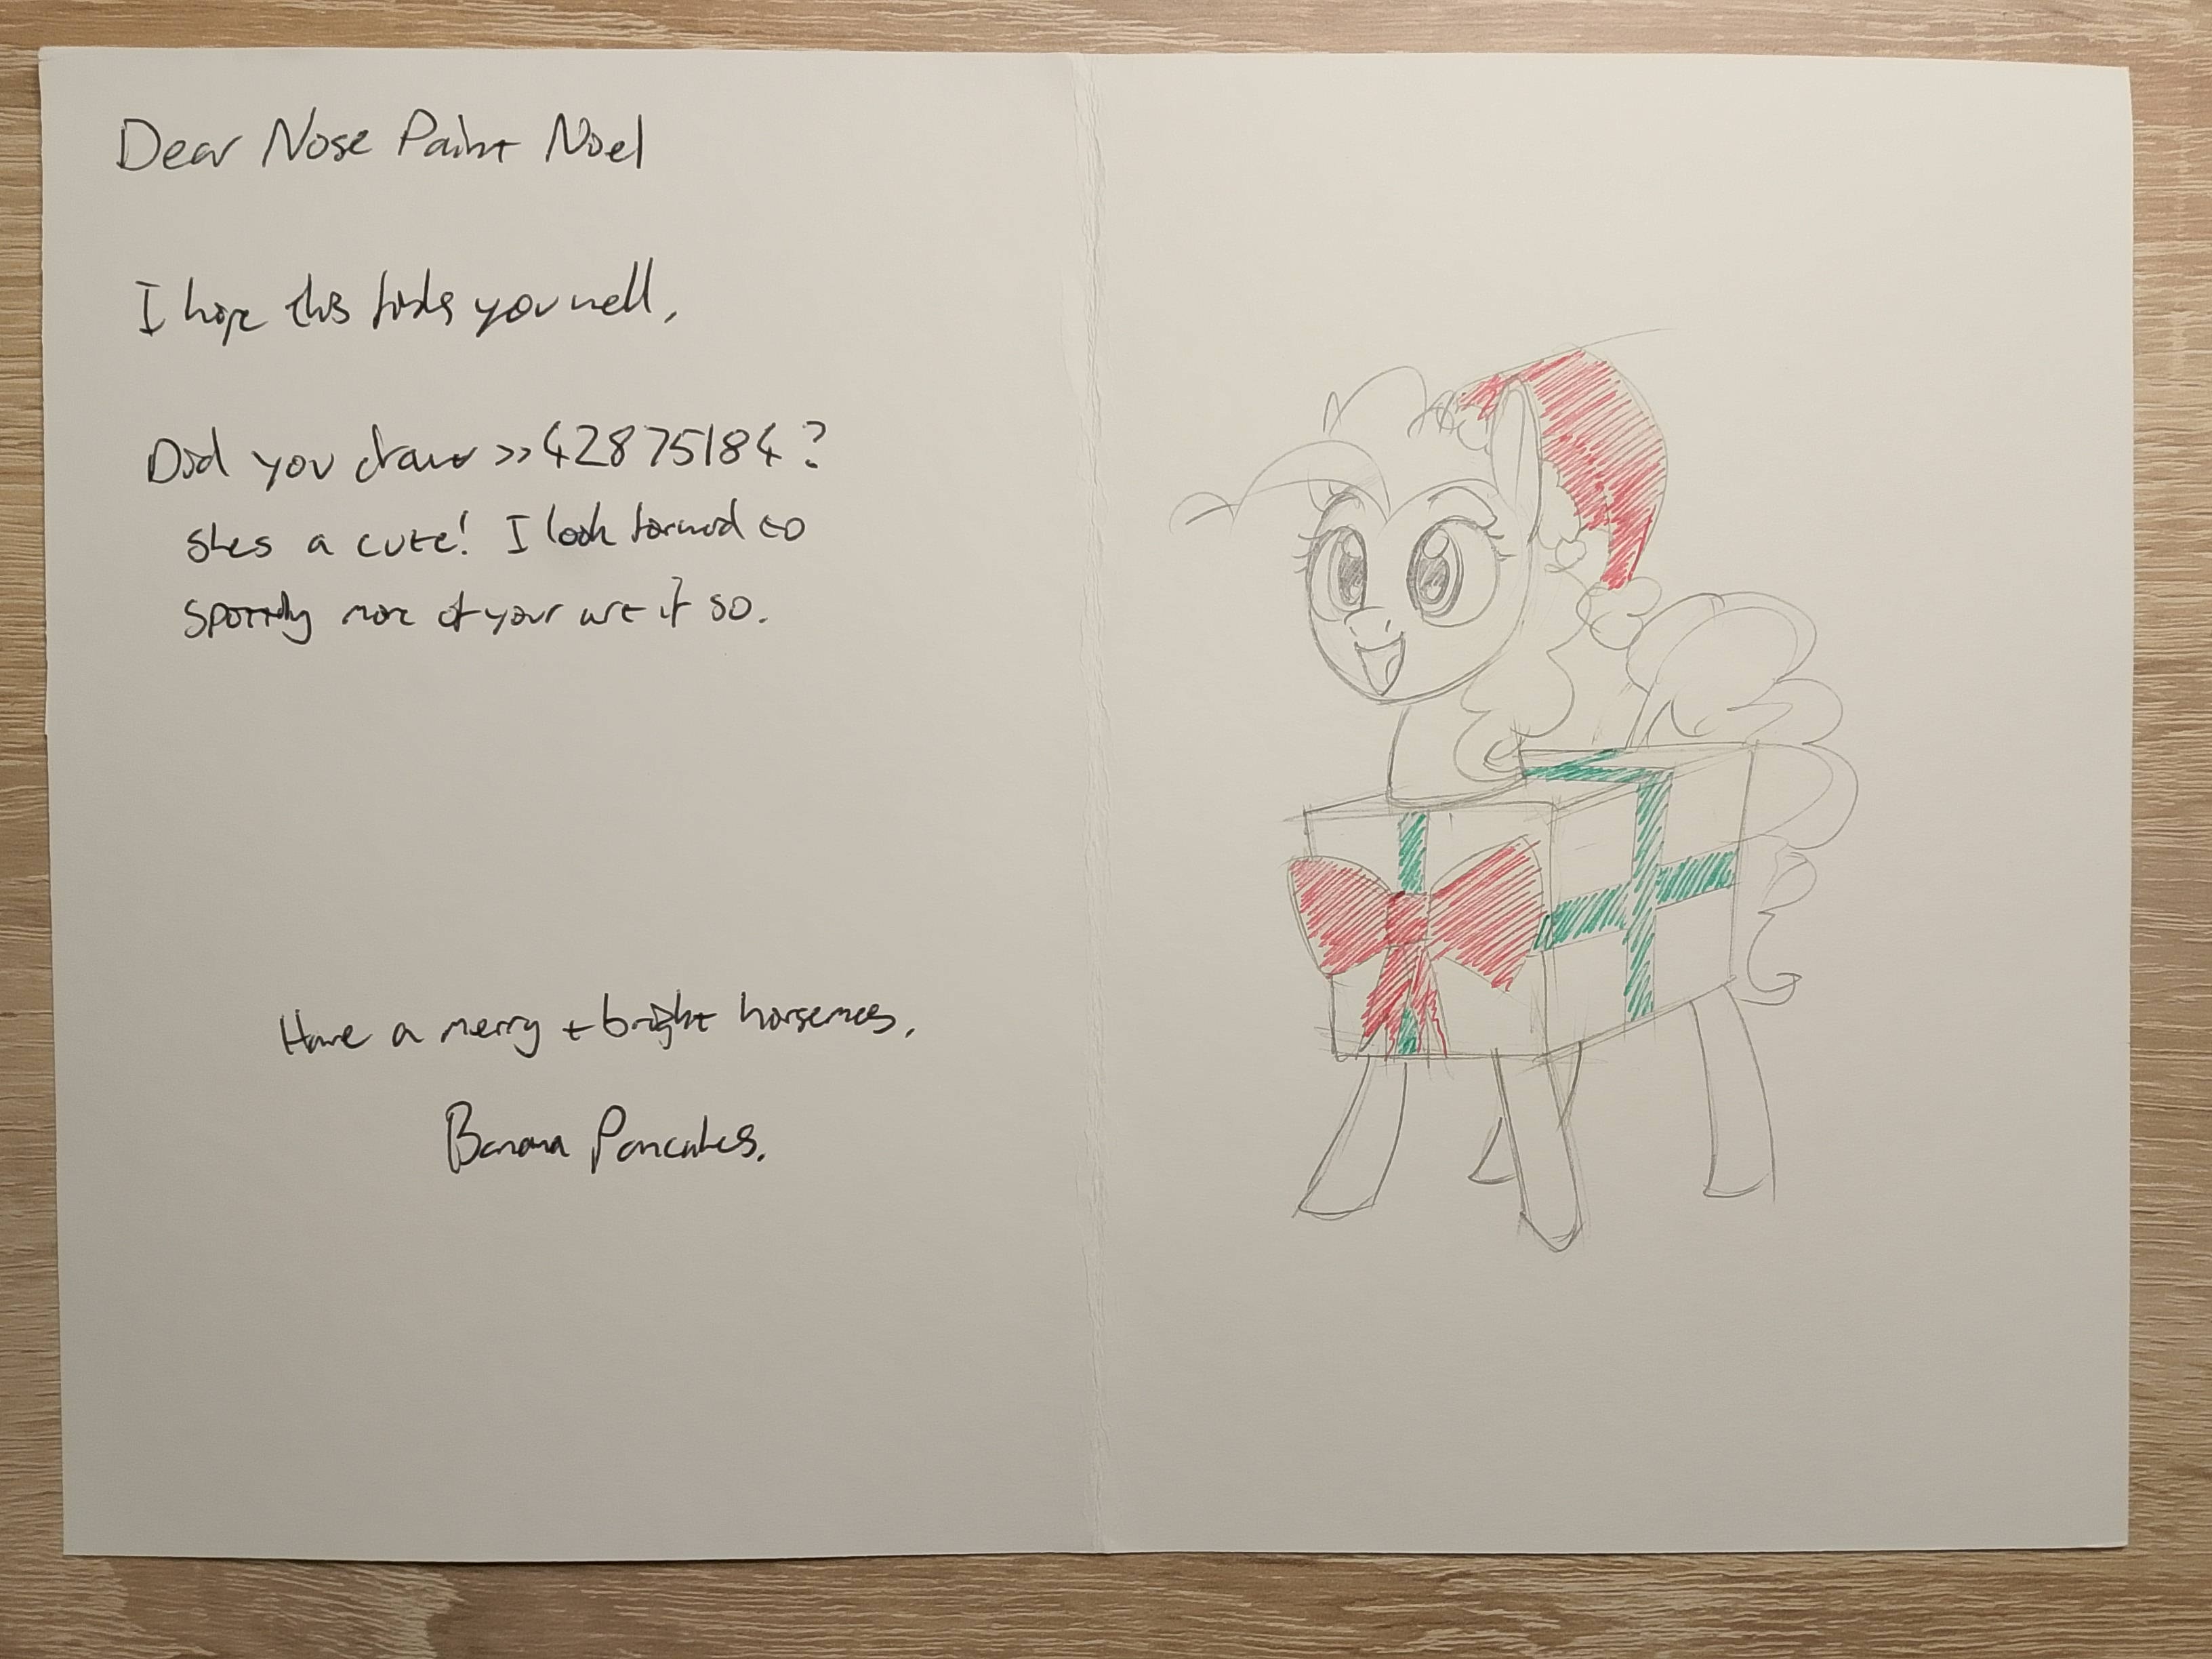 Dear Nose Paint Noel
I hope this finds you well,
Did you draw >>42875184?
shes a cute! I look forward to
spotting more of your art if so.
Have a merry + bright horsemas,
Banana Pancakes.